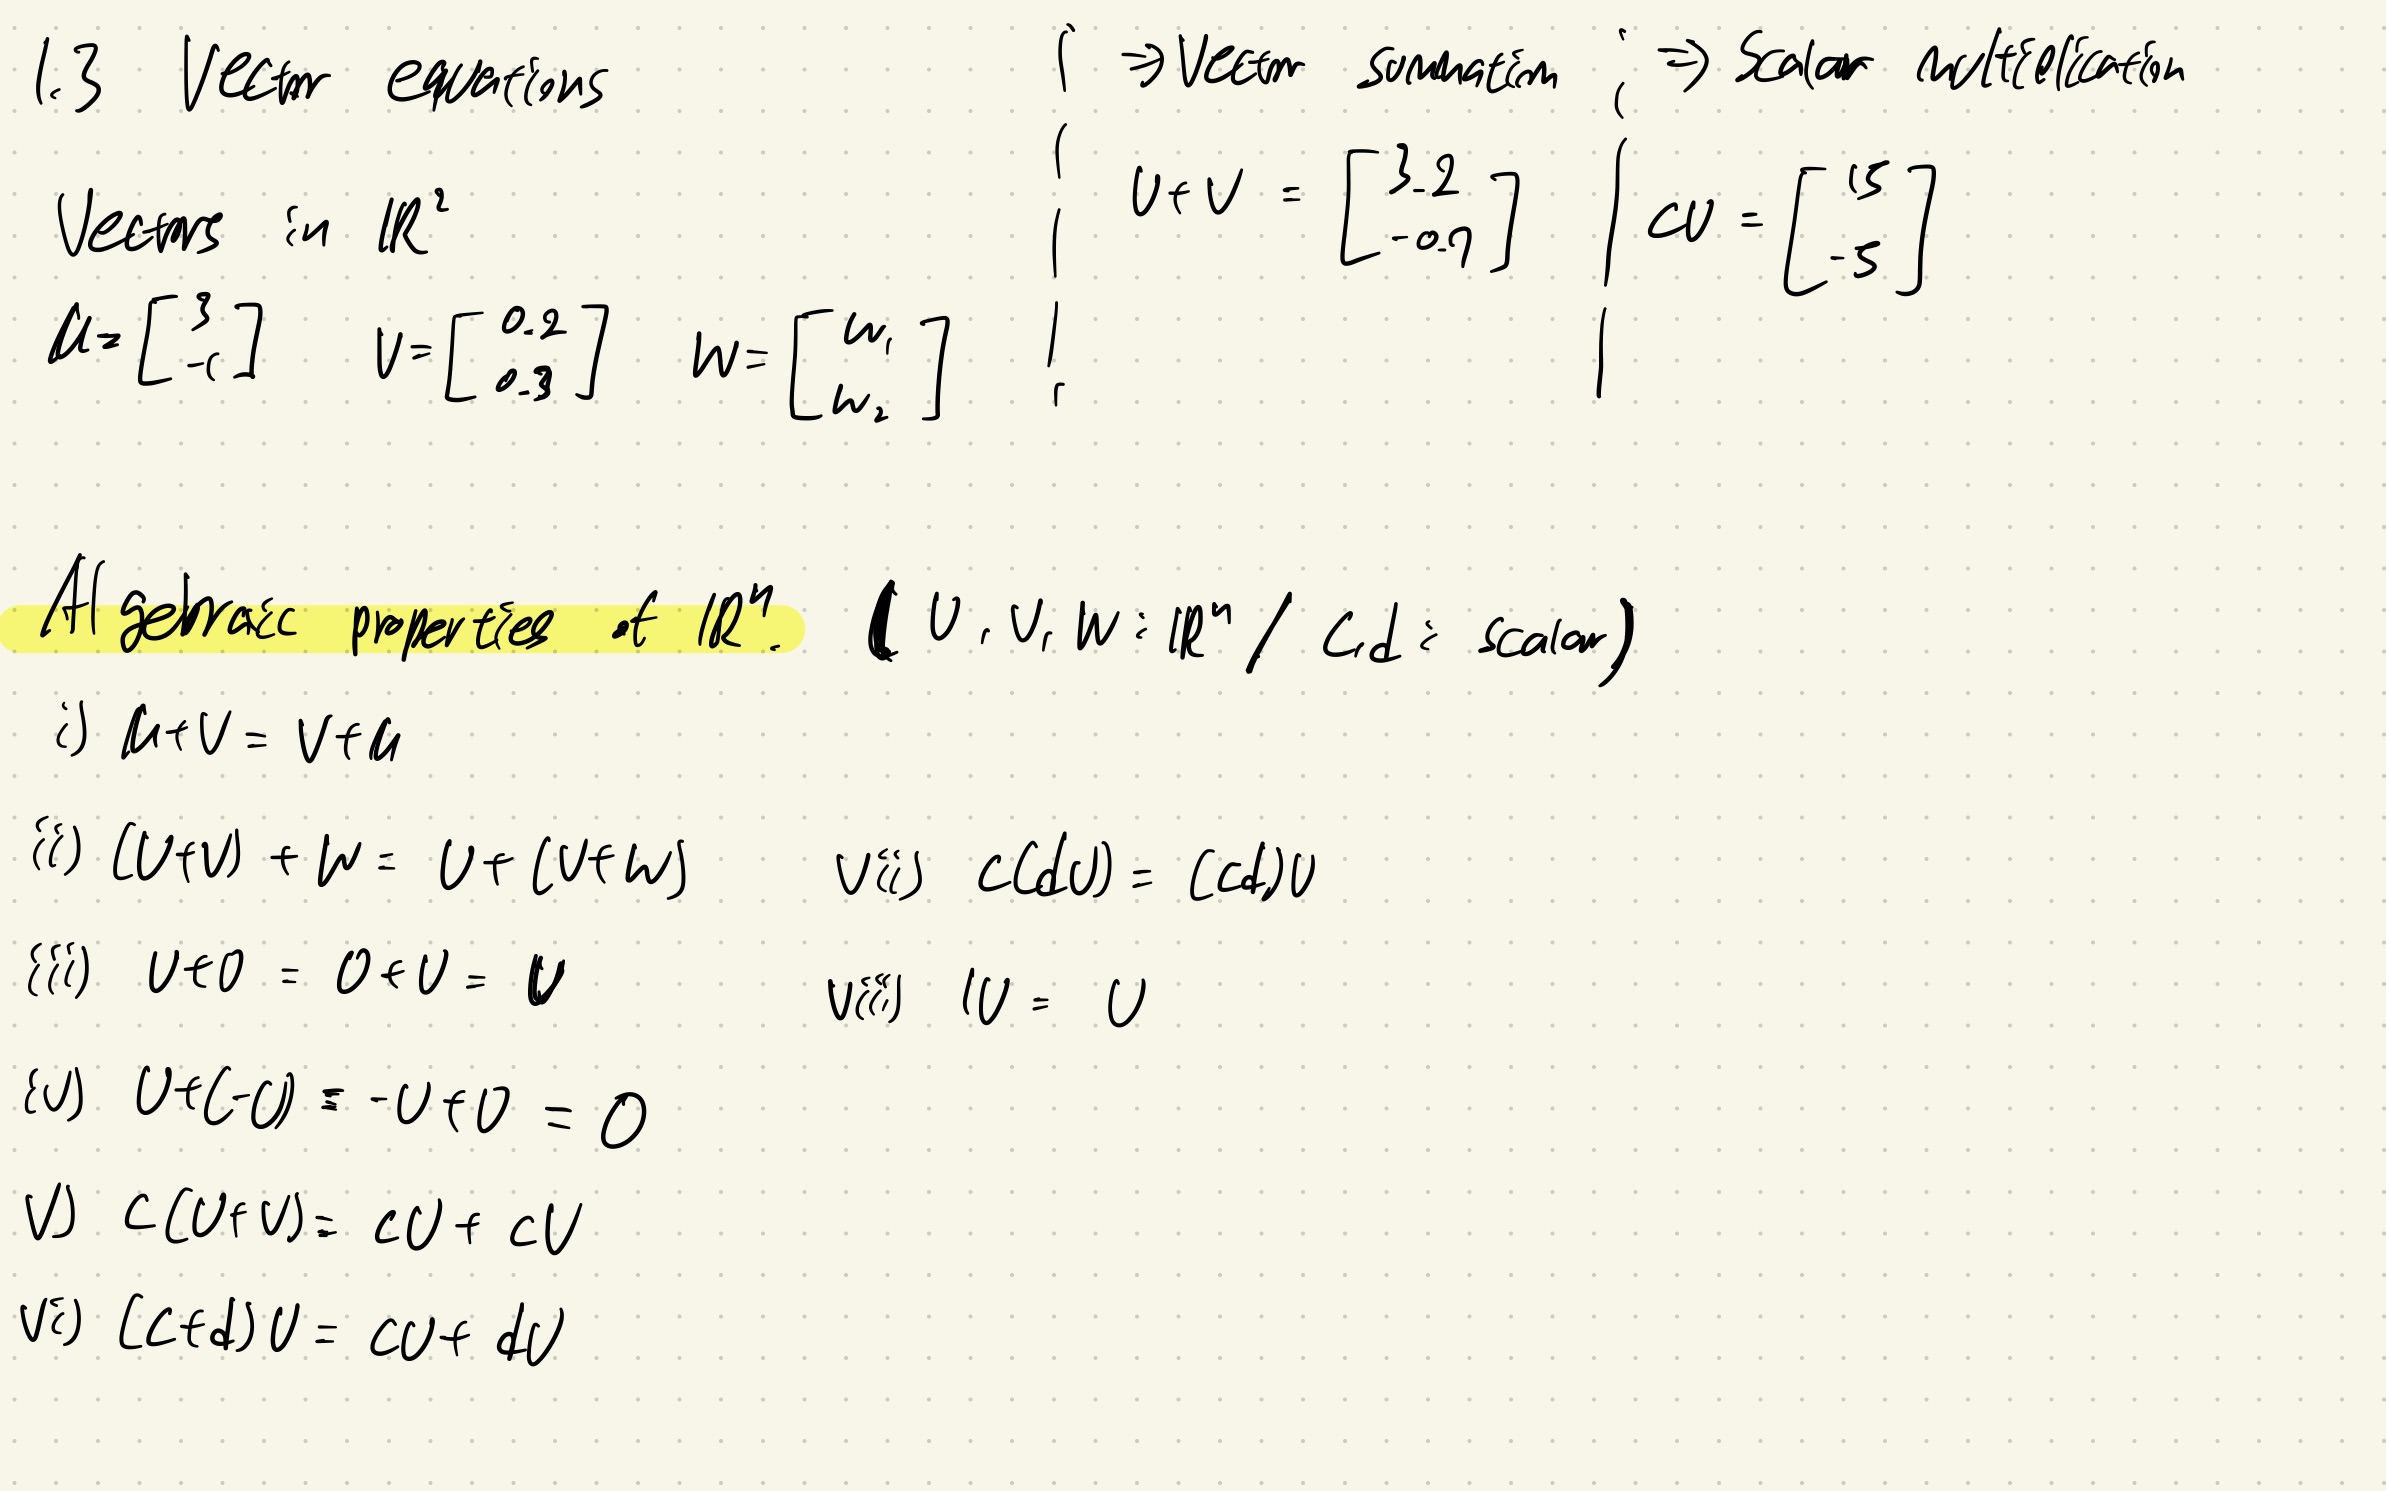 1.3 Vector equations
Vectors in ℝ²
u = [3 -1] v = [0.2 0.3] w = [w₁ w₂]
⇒ Vector summation
u + v = [3.2 -0.7]
⇒ Scalar multiplication
cu = [15 -5]
Algebraic properties of ℝⁿ. (u, v, w : ℝⁿ / c, d : scalar)
i) u+v = v+u
ii) (u+v) + w = u + (v+w)
iii) u+0 = 0+u = u
iv) u+(-u) = -u+u = 0
v) c(u+v) = cu + cv
vi) (c+d)u = cu + du
vii) c(du) = (cd)u
viii) 1u = u